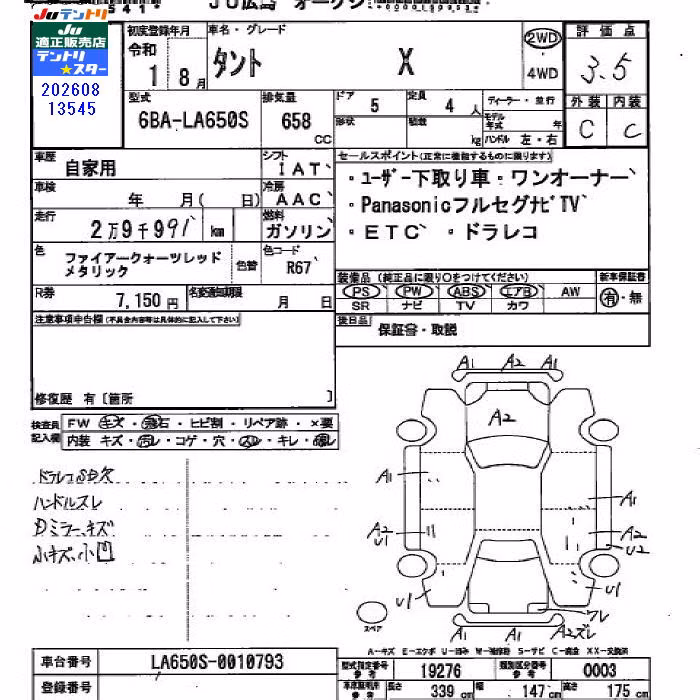 Juテントリ
JU
適正販売店
テントリ
★スター
202608
13545
初度登録年月
令和
1 8月
車名・グレード
タント X
2WD
・
4WD
評価点
3.5
外装 内装
C C
型式
6BA-LA650S
排気量
658
CC
ドア 5
形状
定員 4 人
積載 kg
ディーラー・並行
モデル年式 年
ハンドル 左・右
車歴
自家用
シフト
IAT
車検
年 月( 日)
冷房
AAC
走行
2万9千991 km
燃料
ガソリン
色
ファイアークォーツレッド
メタリック
色替
色コード
R67
R券
7,150円
名変通知期限
月 日
セールスポイント(正常に機能するものに限ります)
・ユーザー下取り車・ワンオーナー
・Panasonicフルセグナビ TV
・ETC ・ドラレコ
装備品(純正品に限り○をつけてください)
新車保証書
PS PW ABS エアB AW
SR ナビ TV カワ
有・無
後日品
保証書・取説
注意事項申告欄(不具合内容等は具体的に記入して下さい)
修復歴 有〔箇所 〕
検査員
記入欄
FW キズ・飛石・ヒビ割・リペア跡・×要
内装 キズ・汚レ・コゲ・穴・スレ・キレ・
ドラレコSD欠
ハンドルスレ
Dミラーキズ
小キズ、小凹
A1 A2 A1
A2
A1
A1
A2
U1
A2
U2
U1
U1
ワレ
A1
A2ズレ
スペア
車台番号
LA650S-0010793
登録番号
型式指定番号
参考
19276
類別区分番号
参考
0003
車体寸法
参考
長さ 339 cm
幅 147 cm
高さ 175 cm